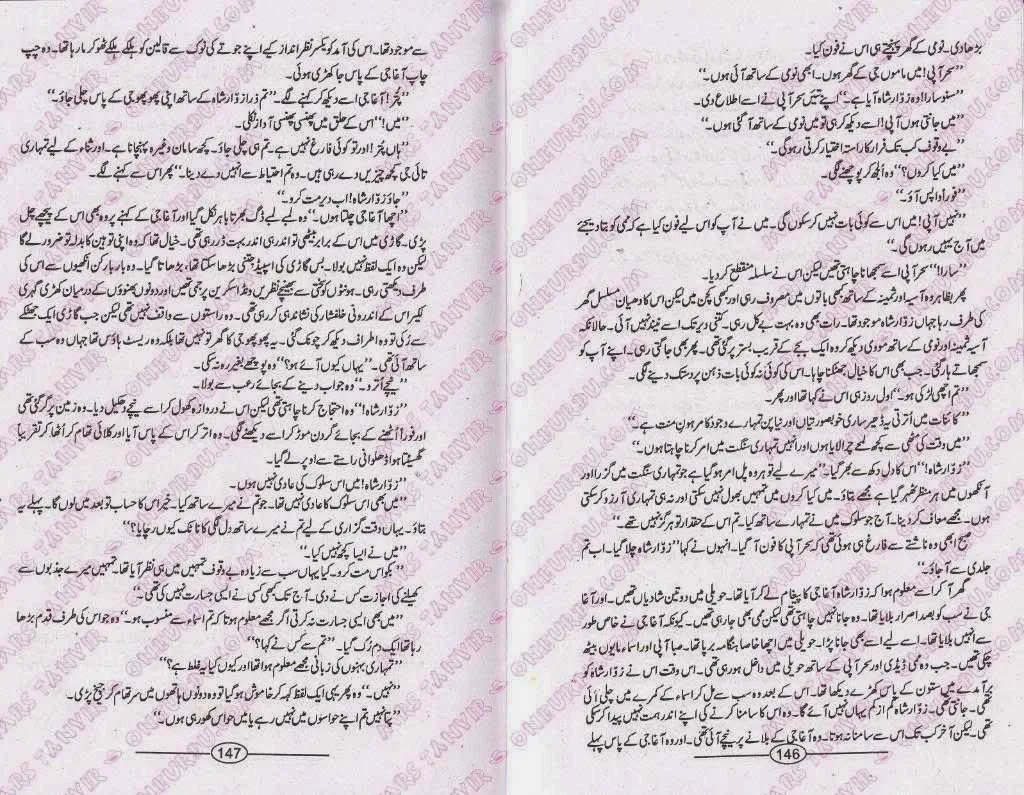 بڑھا دی۔ نومی کے گھر پہنچتے ہی اس نے فون کیا۔
”سحر آپی! میں ماموں جی کے گھر ہوں۔ ابھی نومی کے ساتھ آئی ہوں۔“
”سنو سارا! وہ زوّار شاہ آیا ہے۔“ اپنے تئیں سحر آپی نے اسے اطلاع دی۔
”میں جانتی ہوں آپی! اسے دیکھ کر ہی تو میں نومی کے ساتھ آ گئی ہوں۔“
”بے وقوف کب تک فرار کا راستہ اختیار کرتی رہو گی۔“
”میں کیا کروں؟“ وہ الجھ کر پوچھنے لگی۔
”فوراً واپس آؤ۔“
”نہیں آپی! میں اس سے کوئی بات نہیں کر سکوں گی۔ میں نے آپ کو اس لیے فون کیا ہے کہ ممی کو بتا دیجئے
میں آج یہیں رہوں گی۔“
”سارا!“ سحر آپی اسے سمجھانا چاہتی تھیں لیکن اس نے سلسلہ منقطع کر دیا۔
پھر بظاہر وہ آسیہ اور ثمینہ کے ساتھ بھی باتوں میں مصروف رہی اور کبھی کچن میں لیکن اس کا دھیان مسلسل گھر
کی طرف رہا جہاں زوّار شاہ موجود تھا۔ رات بھی وہ بہت بے کل رہی۔ کتنی دیر تک اسے نیند نہیں آئی۔ حالانکہ
آسیہ ثمینہ اور نومی کے ساتھ مووی دیکھ کر وہ ایک بجے کے قریب بستر پر گئی تھی۔ پھر بھی جاگتی رہی۔ اپنے آپ کو
سمجھاتے ہار گئی۔ جب بھی اس کا خیال جھٹکنا چاہا۔ اس کی کوئی نہ کوئی بات ذہن پر دستک دینے لگی۔
”تم اچھی لڑکی ہو۔“ اول روز ہی اس نے کہا تھا اور پھر۔
”کائنات میں اُترتی یہ ڈھیر ساری خوبصورتیاں اور نیا پن تمہارے وجود کا مرہونِ منت ہے۔“
”میں وقت کی مٹھی سے کچھ لمحے چرا لایا ہوں اور انہیں تمہاری سنگت میں امر کرنا چاہتا ہوں۔“
”زوّار شاہ!“ اس کا دل دکھ سے بھر گیا۔ ”میرے لیے تو ہر وہ پل امر ہو گیا ہے جو تمہاری سنگت میں گزرا اور
آنکھوں میں ہر منظر ٹھہر گیا ہے مجھے بتاؤ۔ میں کیا کروں میں تمہیں بھول نہیں سکتی اور نہ ہی تمہاری آرزو کر سکتی
ہوں۔ مجھے معاف کر دینا۔ آج جو سلوک میں نے تمہارے ساتھ کیا۔ تم اس کے حقدار تو ہرگز نہیں تھے۔“
صبح ابھی وہ ناشتے سے فارغ ہی ہوئی تھی کہ سحر آپی کا فون آ گیا۔ انہوں نے کہا ”زوّار شاہ چلا گیا۔ اب تم
جلدی سے آ جاؤ۔“
گھر آ کر اسے معلوم ہوا کہ زوّار شاہ آغا جی کا پیغام لے کر آیا تھا۔ حویلی میں دو تین شادیاں تھیں۔ اور آغا
جی نے سب کو بصد اصرار بلایا تھا۔ وہ جانا نہیں چاہتی تھی لیکن ممی بھی جا رہی تھیں۔ کیونکہ آغا جی نے خاص طور
سے انہیں بلایا تھا۔ اس لیے اسے بھی جانا پڑا۔ حویلی میں اچھا خاصا ہنگامہ برپا تھا۔ صبا آپی اور اسماء مایوں بیٹھ
چکی تھیں۔ جب وہ ممی ڈیڈی اور سحر آپی کے ساتھ حویلی میں داخل ہو رہی تھی۔ اس وقت اس نے زوّار شاہ کو
برآمدے میں ستون کے پاس کھڑے دیکھا تھا۔ اس کے بعد وہ سب سے مل کر اسماء کے کمرے میں چلی آئی
تھی۔ جانتی تھی۔ زوّار شاہ کم از کم یہاں نہیں آئے گا۔ وہ اس کا سامنا کرنے کی اپنے اندر ہمت نہیں پیدا کر سکی
تھی۔ لیکن آخر کب تک اس سے سامنا نہ ہوتا۔ وہ آغا جی کے بلانے پر نیچے آئی تھی۔ اور وہ آغا جی کے پاس پہلے
146
سے موجود تھا۔ اس کی آمد کو یکسر نظر انداز کیے اپنے جوتے کی نوک سے قالین کو ہلکے ہلکے ٹھوکر مار رہا تھا۔ وہ چپ
چاپ آغا جی کے پاس جا کھڑی ہوئی۔
”پُتر! آغا جی اسے دیکھ کر کہنے لگے۔ ”تم ذرا زوّار شاہ کے ساتھ اپنی پھوپھو جی کے پاس چلی جاؤ۔“
”میں!“ اس کے حلق میں پھنسی پھنسی آواز نکلی۔
”ہاں پُتر! اور تو کوئی فارغ نہیں ہے۔ تم ہی چلی جاؤ۔ کچھ سامان وغیرہ پہنچانا ہے۔ اور ثناء کے لیے تمہاری
تائی جی کچھ چیزیں دے رہی ہیں۔ وہ تم احتیاط سے انہیں دے دینا۔“ پھر اس سے کہنے لگے۔
”جاؤ زوّار شاہ! اب دیر مت کرو۔“
”اچھا آغا جی چلتا ہوں۔“ وہ لمبے لمبے ڈگ بھرتا باہر نکل گیا اور آغا جی کے کہنے پر وہ بھی اس کے پیچھے چل
پڑی۔ گاڑی میں اس کے برابر بیٹھی تو اندر ہی اندر بہت ڈر رہی تھی۔ خیال تھا کہ وہ اپنی توہین کا بدلہ تو ضرور لے گا
لیکن وہ ایک لفظ نہیں بولا۔ بس گاڑی کی اسپیڈ جتنی بڑھا سکتا تھا، بڑھاتا گیا۔ وہ بار بار کن انکھیوں سے اس کی
طرف دیکھتی رہی۔ ہونٹوں کو سختی سے بھینچے نظریں ونڈ اسکرین پر جمی تھیں اور دونوں بھنوؤں کے درمیان کھڑی گہری
لکیر اس کے اندرونی خلفشار کی نشاندہی کر رہی تھی۔ وہ راستوں سے واقف نہیں تھی لیکن جب گاڑی ایک جھٹکے
سے رُکی تو وہ اطراف دیکھ کر چونک گئی۔ یہ پھوپھو جی کا گھر تو نہیں تھا بلکہ وہ ریسٹ ہاؤس تھا جہاں وہ سب کے
ساتھ آئی تھی۔ ”یہاں کیوں آئے ہو؟“ وہ پوچھے بغیر رہ نہ سکی۔
”نیچے اُترو۔“ وہ جواب دینے کے بجائے رعب سے بولا۔
”زوّار شاہ!“ وہ احتجاج کرنا چاہتی تھی لیکن اس نے دروازہ کھول کر اسے نیچے دھکیل دیا۔ وہ زمین پر گر گئی تھی
اور فوراً اُٹھنے کے بجائے گردن موڑ کر اسے دیکھنے لگی۔ وہ اتر کر اس کے پاس آیا اور کلائی تھام کر اٹھا کر تقریباً
گھسیٹتا ہوا ڈھلوانی راستے سے اوپر لے گیا۔
”زوّار شاہ! میں اس سلوک کی عادی نہیں ہوں۔
”میں بھی اس سلوک کا عادی نہیں تھا۔ جو تم نے میرے ساتھ کیا۔ خیر اس کا حساب تو بعد میں لوں گا۔ پہلے یہ
بتاؤ۔ یہاں وقت گزاری کے لیے تم نے میرے ساتھ دل لگی کا ناٹک کیوں رچایا؟“
”میں نے ایسا کچھ نہیں کیا۔“
”بکواس مت کرو۔ کیا یہاں سب سے زیادہ بے وقوف تمہیں میں ہی نظر آیا تھا۔ تمہیں میرے جذبوں سے
کھیلنے کی اجازت کس نے دی۔ آج تک کبھی کسی نے ایسی جسارت نہیں کی تھی۔“
”میں بھی ایسی جسارت نہ کرتی اگر مجھے معلوم ہوتا کہ تم اسماء سے منسوب ہو۔“ وہ جو اس کی طرف قدم بڑھا
رہا تھا ایک دم رُک گیا۔ ”تم سے کس نے کہا؟“
”تمہاری بہنوں کی زبانی مجھے معلوم ہوا تھا اور کیوں کیا یہ غلط ہے؟“
”نہیں۔“ وہ پھر یہی ایک لفظ کہہ کر خاموش ہو گیا تو وہ دونوں ہاتھوں میں سر تھام کر چیخ پڑی۔
”پتا نہیں تم اپنے حواسوں میں نہیں رہے یا میں حواس کھو رہی ہوں۔“
147